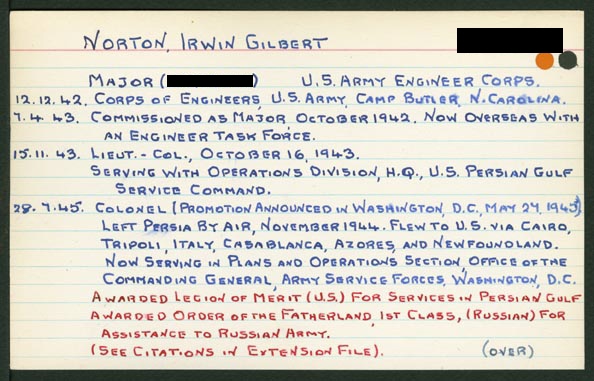 NORTON, IRWIN GILBERT
MAJOR ( ) U.S. ARMY ENGINEER CORPS.
12.12.42. CORPS OF ENGINEERS, U.S. ARMY, CAMP BUTLER, N. CAROLINA.
7.4.43. COMMISSIONED AS MAJOR OCTOBER 1942. NOW OVERSEAS WITH
AN ENGINEER TASK FORCE.
15.11.43. LIEUT.-COL., OCTOBER 16, 1943.
SERVING WITH OPERATIONS DIVISION, H.Q., U.S. PERSIAN GULF
SERVICE COMMAND.
28.7.45. COLONEL (PROMOTION ANNOUNCED IN WASHINGTON, D.C., MAY 27, 1945).
LEFT PERSIA BY AIR, NOVEMBER 1944. FLEW TO U.S. VIA CAIRO,
TRIPOLI, ITALY, CASABLANCA, AZORES, AND NEWFOUNDLAND.
NOW SERVING IN PLANS AND OPERATIONS SECTION, OFFICE OF THE
COMMANDING GENERAL, ARMY SERVICE FORCES, WASHINGTON, D.C.
AWARDED LEGION OF MERIT (U.S.) FOR SERVICES IN PERSIAN GULF
AWARDED ORDER OF THE FATHERLAND, 1ST CLASS, (RUSSIAN) FOR
ASSISTANCE TO RUSSIAN ARMY.
(SEE CITATIONS IN EXTENSION FILE). (OVER)